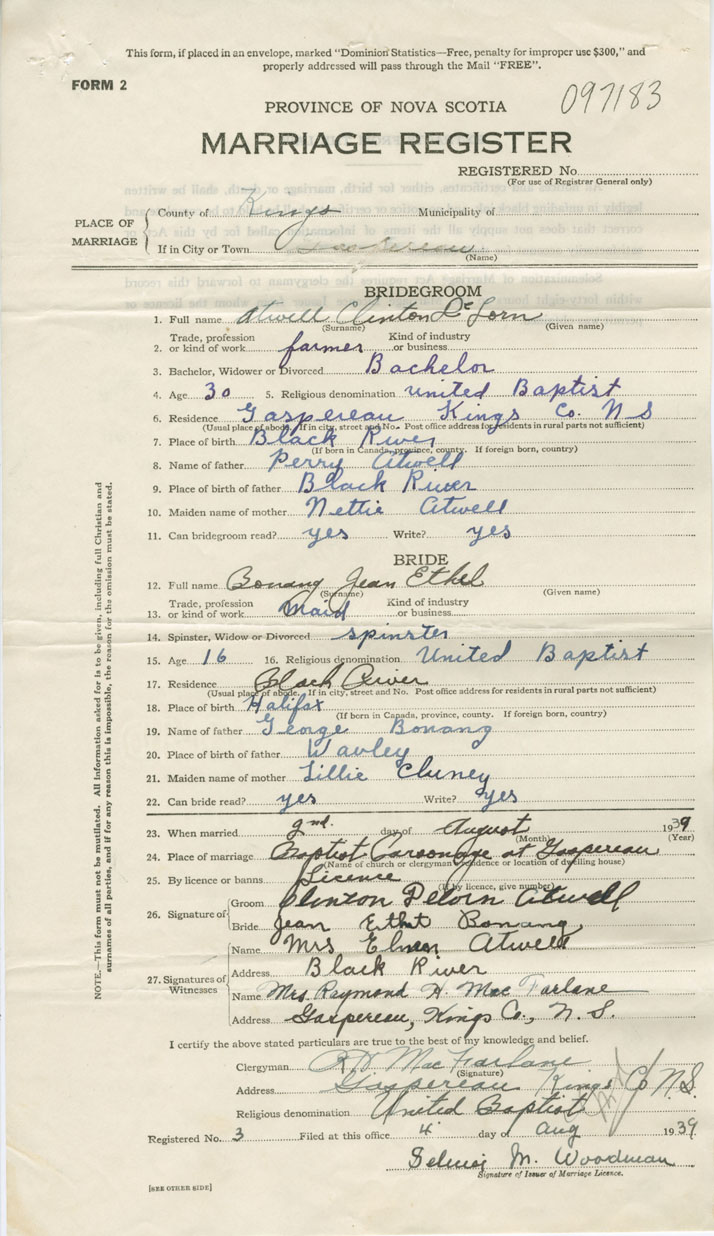 This form, if placed in an envelope, marked "Dominion Statistics—Free, penalty for improper use $300," and
properly addressed will pass through the Mail "FREE".
FORM 2
097183
PROVINCE OF NOVA SCOTIA
MARRIAGE REGISTER
REGISTERED No.
(For use of Registrar General only)
PLACE OF MARRIAGE
County of Kings Municipality of
If in City or Town Gaspereau
(Name)
BRIDEGROOM
1. Full name Atwell Clinton DeLorn
(Surname) (Given name)
2. Trade, profession or kind of work farmer Kind of industry or business
3. Bachelor, Widower or Divorced Bachelor
4. Age 30 5. Religious denomination United Baptist
6. Residence Gaspereau Kings Co. N S
(Usual place of abode. If in city, street and No. Post office address for residents in rural parts not sufficient)
7. Place of birth Black River
(If born in Canada, province, county. If foreign born, country)
8. Name of father Perry Atwell
9. Place of birth of father Black River
10. Maiden name of mother Nettie Atwell
11. Can bridegroom read? yes Write? yes
BRIDE
12. Full name Bonang Jean Ethel
(Surname) (Given name)
13. Trade, profession or kind of work Maid Kind of industry or business
14. Spinster, Widow or Divorced spinster
15. Age 16 16. Religious denomination United Baptist
17. Residence Black River
(Usual place of abode. If in city, street and No. Post office address for residents in rural parts not sufficient)
18. Place of birth Halifax
(If born in Canada, province, county. If foreign born, country)
19. Name of father George Bonang
20. Place of birth of father Wavley
21. Maiden name of mother Lillie Cluney
22. Can bride read? yes Write? yes
23. When married 2nd. day of August 1939
(Month) (Year)
24. Place of marriage Baptist Parsonage at Gaspereau
(Name of church or clergyman residence or location of dwelling house)
25. By licence or banns Licence
(If by licence, give number)
26. Signature of
Groom Clinton Delorn Atwell
Bride Jean Ethel Bonang
27. Signatures of Witnesses
Name Mrs Elmer Atwell
Address Black River
Name Mrs. Raymond H. MacFarlane
Address Gaspereau, Kings Co., N. S.
I certify the above stated particulars are true to the best of my knowledge and belief.
Clergyman R H MacFarlane
(Signature)
Address Gaspereau Kings Co N.S.
Religious denomination United Baptist
Registered No. 3 Filed at this office 4 day of Aug 1939
M. Woodman
Signature of Issuer of Marriage Licence.
[SEE OTHER SIDE]
NOTE.—This form must not be mutilated. All information asked for is to be given, including full Christian and
surnames of all parties, and if for any reason this is impossible, the reason for the omission must be stated.